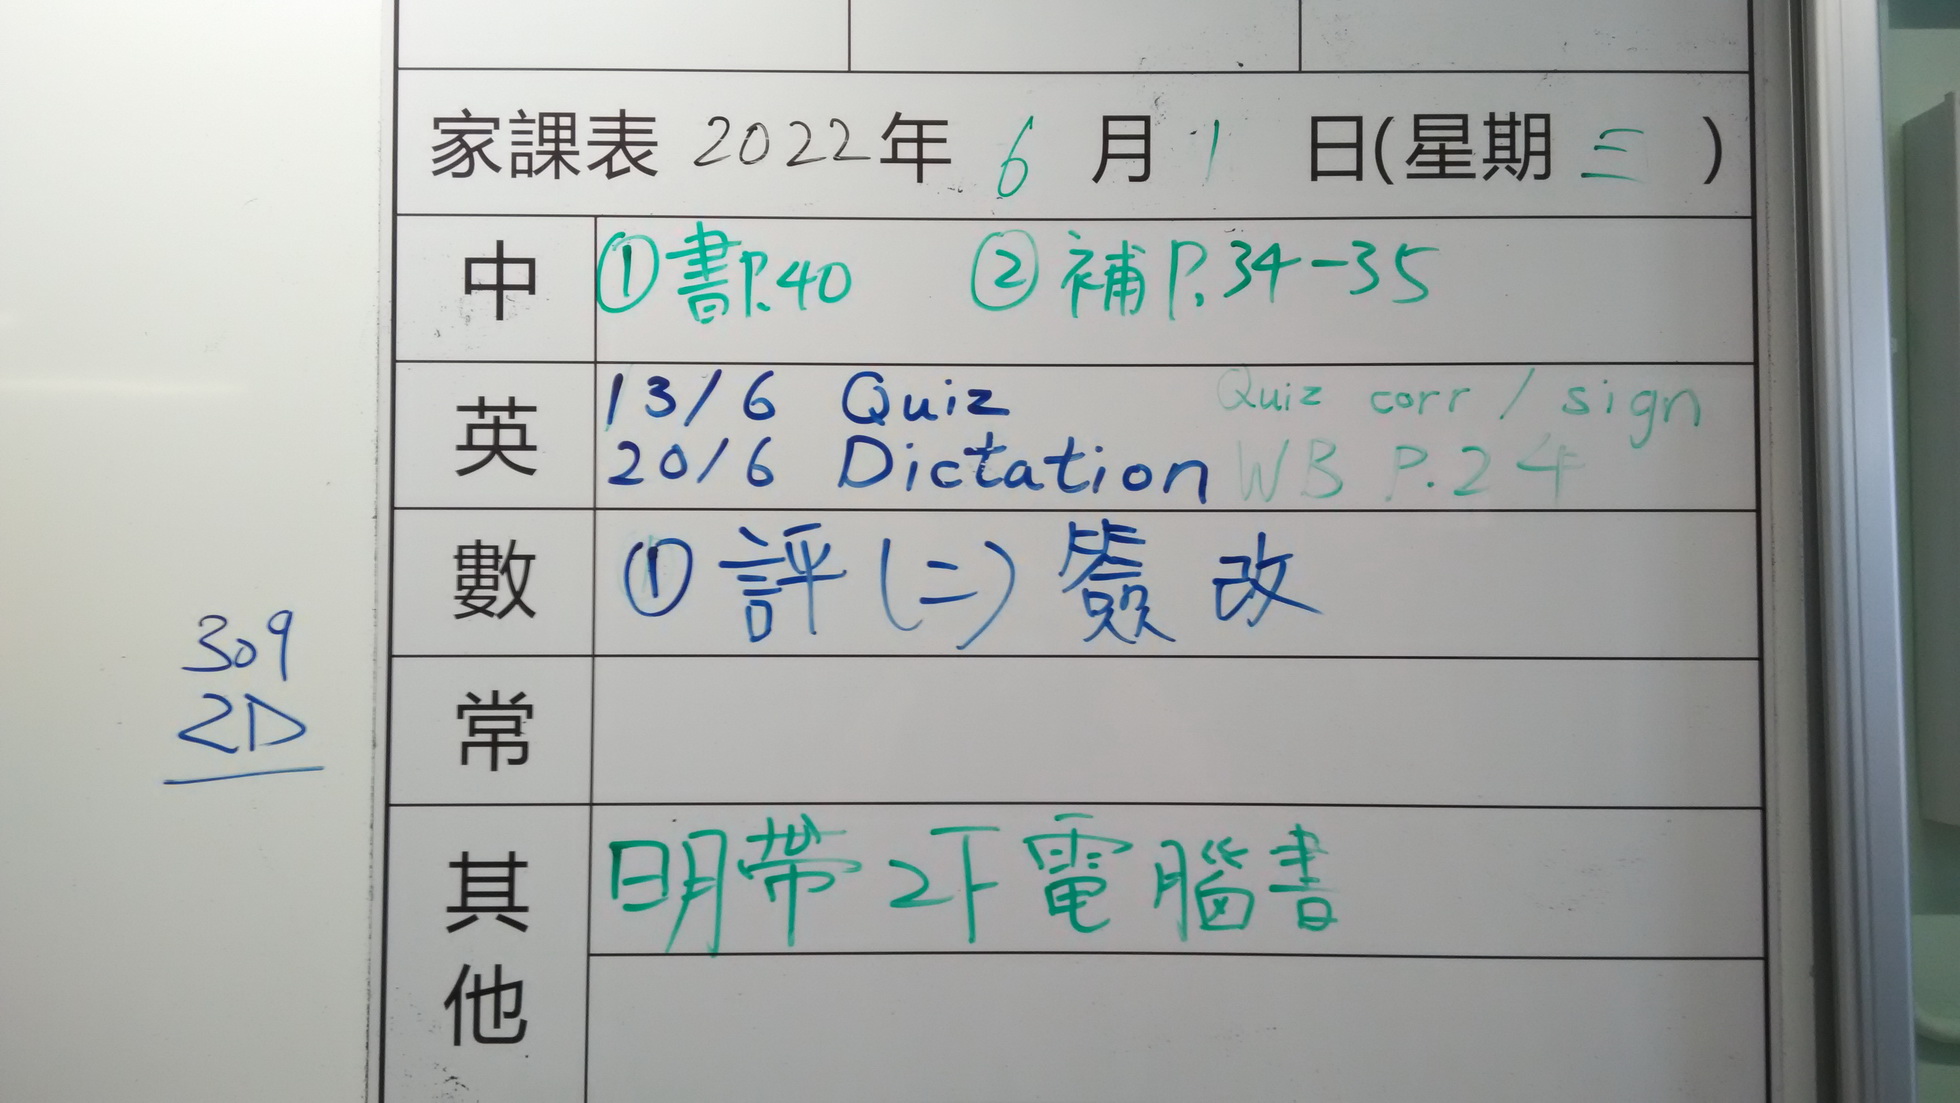 家課表 2022年 6 月 1 日(星期 三 )
中 ①書P.40 ②補P.34-35
英 13/6 Quiz Quiz corr / sign
20/6 Dictation WB P.24
數 ① 評(二) 簽 改
309
2D
常
其他 明帶2下電腦書